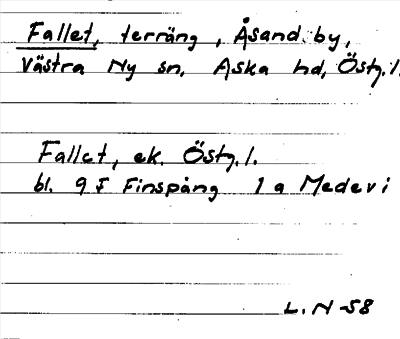 Fallet, terräng, Åsand by,
Västra Ny sn, Aska hd, Östg.l.
Fallet, ek. Östg.l.
bl. 9 F Finspång 1 a Medevi
L. N -58